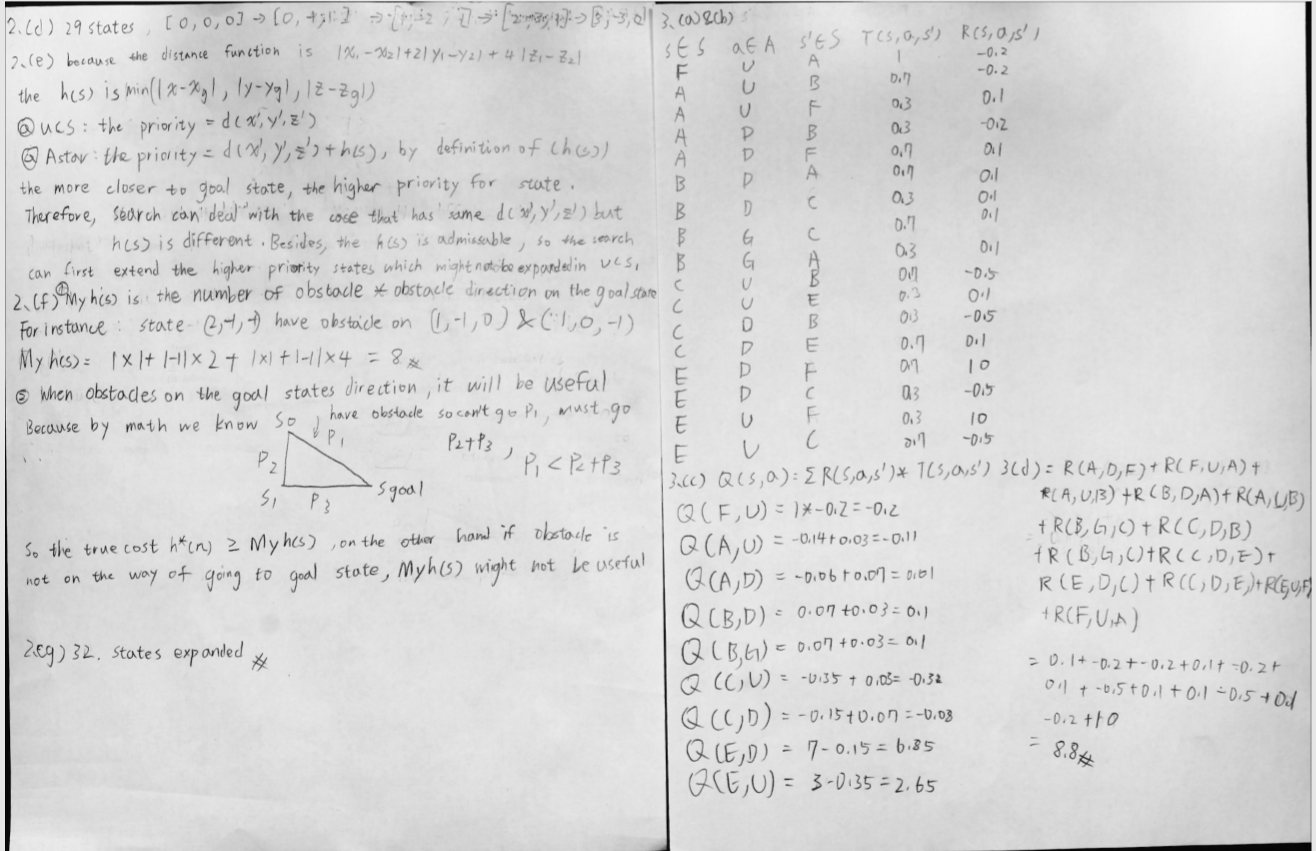 2.(d) 29 states, [0,0,0] → [0,
2.(e) because the distance function is |x₁-x₂|+2|y₁-y₂|+4|z₁-z₂|
the h(s) is min(|x-xg|, |y-yg|, |z-zg|)
① UCS : the priority = d(x',y',z')
② Astar : the priority = d(x',y',z')+h(s), by definition of (h(s))
the more closer to goal state, the higher priority for state.
Therefore, search can deal with the case that has same d(x',y',z') but
h(s) is different. Besides, the h(s) is admissable, so the search
can first extend the higher priority states which might not be expanded in UCS.
2.(f) ① My h(s) is the number of obstacle * obstacle direction on the goal state
For instance : state (2,-1,-1) have obstacle on (1,-1,0) & (1,0,-1)
My h(s) = |x|+|-1|x2 + |x|+|-1|x4 = 8
② When obstacles on the goal states direction, it will be useful
Because by math we know
So
have obstacle so can't go P₁, must go
P₂+P₃,
P₁
P₂
P₁ < P₂+P₃
S₁ P₃ Sgoal
So the true cost h*(n) ≥ My h(s), on the other hand if obstacle is
not on the way of going to goal state, My h(s) might not be useful
2.(g) 32. states expanded
3.(a)&(b)
s∈S a∈A s'∈S T(s,a,s') R(s,a,s')
F U A 1 -0.2
A U B 0.7 -0.2
A U F 0.3 0.1
A D B 0.3 -0.2
A D F 0.7 0.1
B D A 0.7 0.1
B D C 0.3 0.1
B G C 0.7 0.1
B G A 0.3 0.1
C U B 0.7 -0.5
C U E 0.3 0.1
C D B 0.3 -0.5
C D E 0.7 0.1
E D F 0.7 10
E D C 0.3 -0.5
E U F 0.3 10
E U C 0.7 -0.5
3.(c) Q(s,a) : Σ R(s,a,s') * T(s,a,s')
Q(F,U) = 1*-0.2 = -0.2
Q(A,U) = -0.14+0.03 = -0.11
Q(A,D) = -0.06+0.07 = 0.01
Q(B,D) = 0.07+0.03 = 0.1
Q(B,G) = 0.07+0.03 = 0.1
Q(C,U) = -0.35 + 0.03 = -0.32
Q(C,D) = -0.15+0.07 = -0.08
Q(E,D) = 7-0.15 = 6.85
Q(E,U) = 3-0.35 = 2.65
3(d) = R(A,D,F)+R(F,U,A)+
R(A,U,B)+R(B,D,A)+R(A,U,B)
+R(B,G,C)+R(C,D,B)
+R(B,G,C)+R(C,D,E)+
R(E,D,C)+R(C,D,E)+R(E,U,F)
+R(F,U,A)
= 0.1+-0.2+-0.2+0.1+-0.2+
0.1+-0.5+0.1+0.1-0.5+0.1
-0.2+10
= 8.8